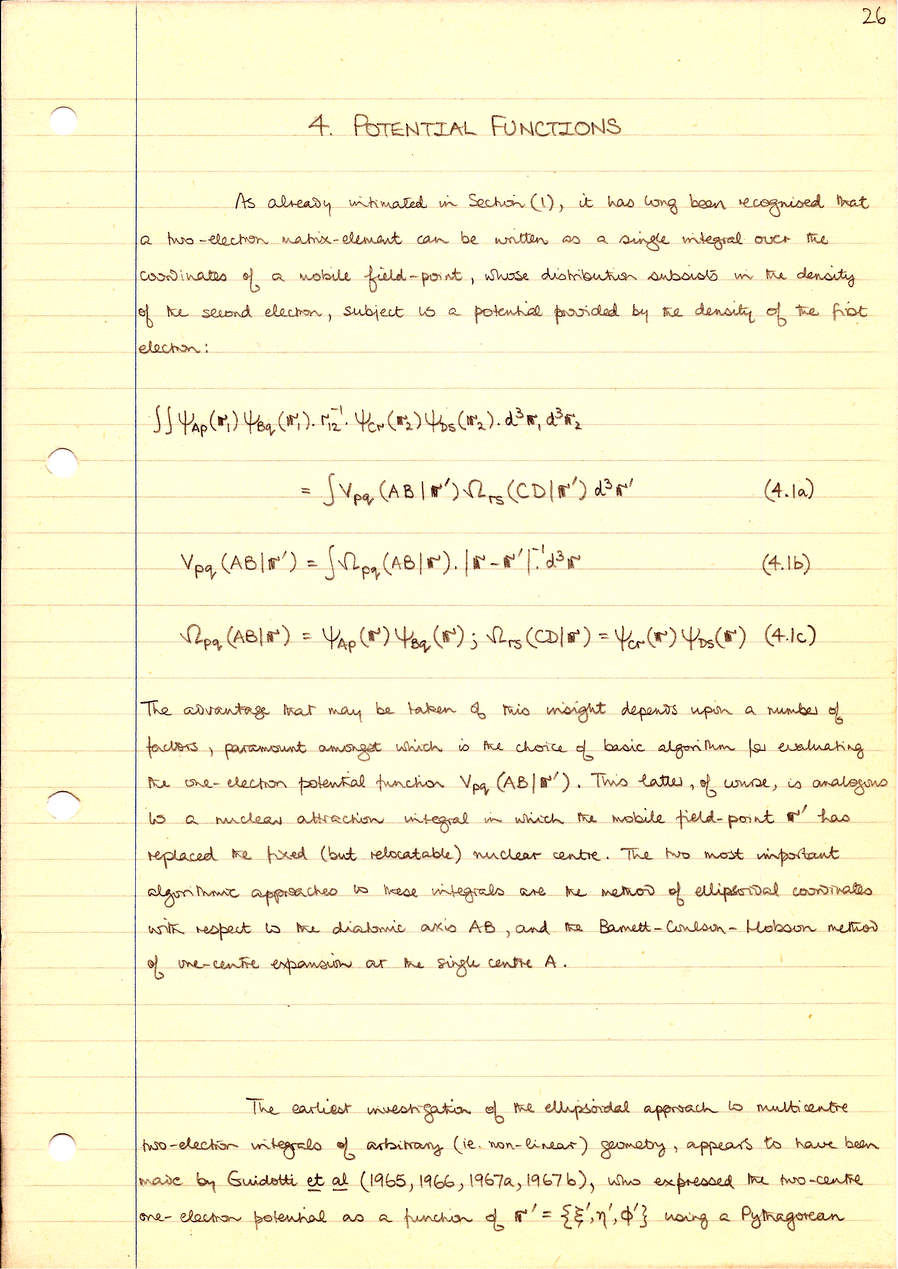 26
4. POTENTIAL FUNCTIONS
As already intimated in Section (1), it has long been recognised that
a two-electron matrix-element can be written as a single integral over the
coordinates of a mobile field-point, whose distribution subsists in the density
of the second electron, subject to a potential provided by the density of the first
electron:
∫∫ψ_Ap(𝐫₁)ψ_Bq(𝐫₁).r₁₂⁻¹.ψ_Cr(𝐫₂)ψ_Ds(𝐫₂).d³𝐫₁d³𝐫₂
= ∫V_pq(AB|𝐫′)Ω_rs(CD|𝐫′)d³𝐫′ (4.1a)
V_pq(AB|𝐫′) = ∫Ω_pq(AB|𝐫).|𝐫-𝐫′|⁻¹.d³𝐫 (4.1b)
Ω_pq(AB|𝐫) = ψ_Ap(𝐫)ψ_Bq(𝐫); Ω_rs(CD|𝐫) = ψ_Cr(𝐫)ψ_Ds(𝐫) (4.1c)
The advantage that may be taken of this insight depends upon a number of
factors, paramount amongst which is the choice of basic algorithm for evaluating
the one-electron potential function V_pq(AB|𝐫′). This latter, of course, is analogous
to a nuclear attraction integral in which the mobile field-point 𝐫′ has
replaced the fixed (but relocatable) nuclear centre. The two most important
algorithmic approaches to these integrals are the method of ellipsoidal coordinates
with respect to the diatomic axis AB, and the Barnett-Coulson-Hobson method
of one-centre expansion at the single centre A.
The earliest investigation of the ellipsoidal approach to multicentre
two-election integrals of arbitrary (ie. non-linear) geometry, appears to have been
made by Guidotti et al (1965, 1966, 1967a, 1967b), who expressed the two-centre
one-electron potential as a function of 𝐫′ = {ξ′,η′,ϕ′} using a Pythagorean